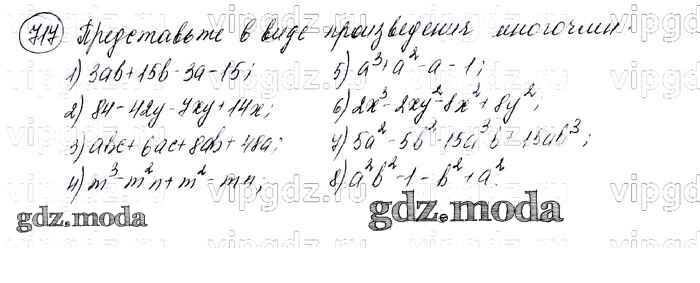 717 Представьте в виде произведения многочлен.
1) 3ab+15b-3a-15;
2) 84-42y-7xy+14x;
3) abc+6ac+8ab+48a;
4) m³-m²n+m²-mn;
5) a³+a²-a-1;
6) 2x³-2xy²-8x²+8y²;
7) 5a²-5b²-15a³b+15ab³;
8) a²b²-1-b²+a².
gdz.moda
gdz.moda